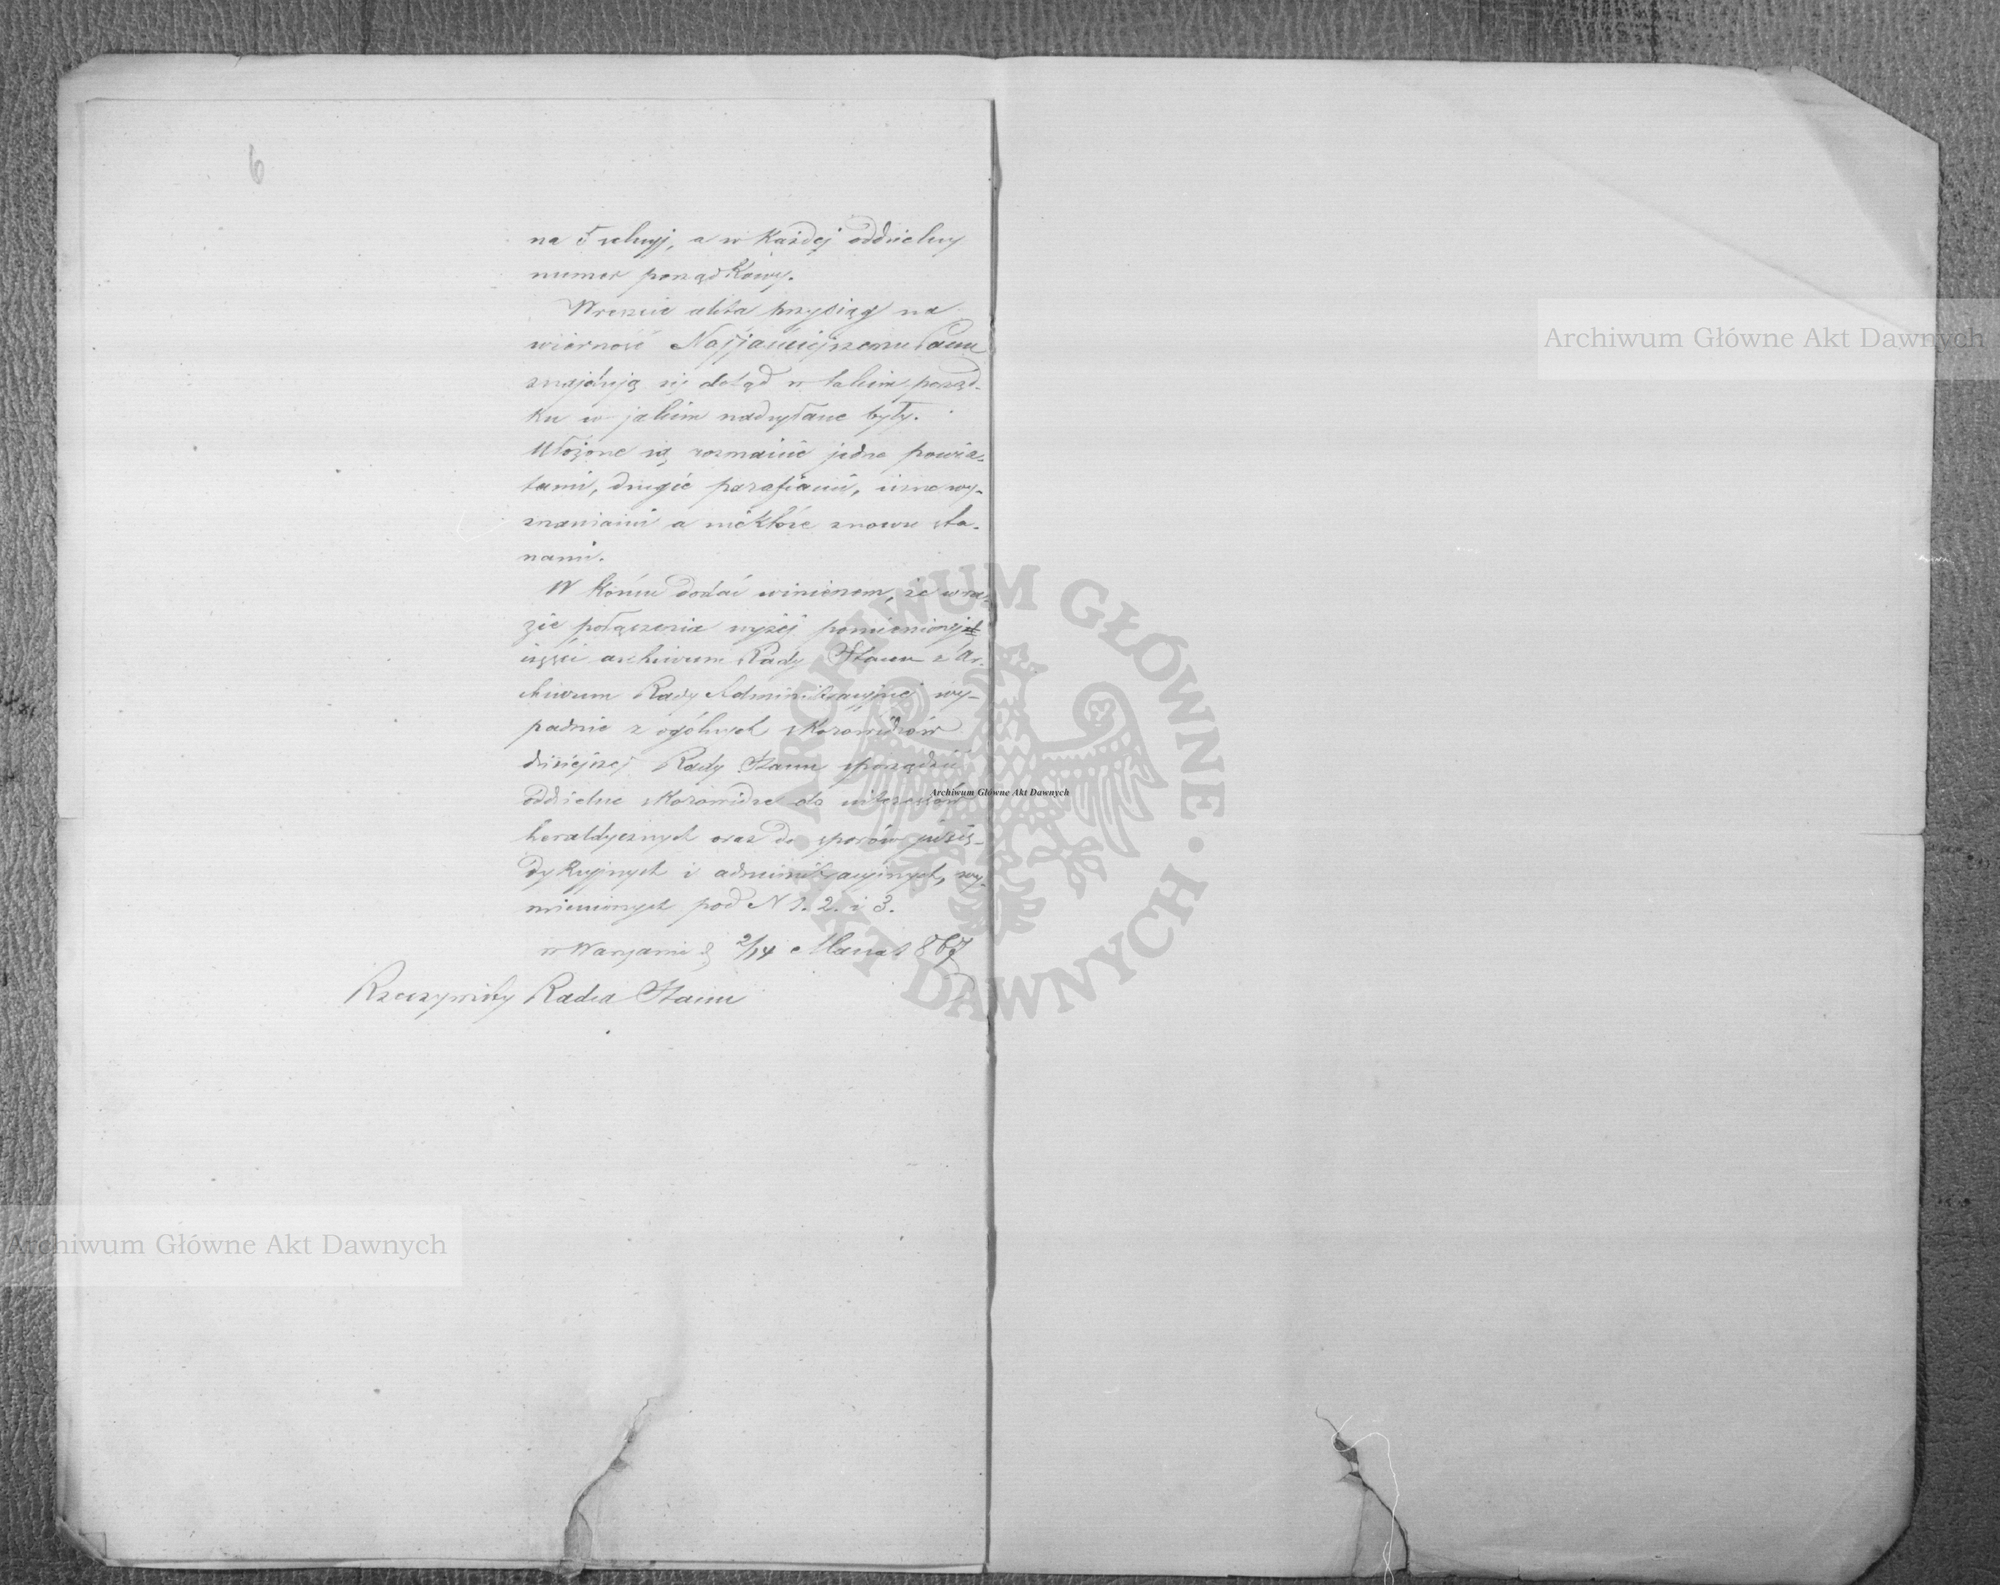 6
na 5 sekcyj, a w każdej oddzielny
numer porządkowy.
Wreszcie akta przysiąg na
wierność Najjaśniejszemu Panu
znajdują się dotąd w takim porząd-
ku w jakim nadsyłane były.
Ułożone są rozmaicie jedne powia-
tami, drugie parafiami, inne wy-
znaniami a niektóre znowu sta-
nami.
W końcu dodać winienem, że w ra-
zie połączenia wyżej pomienionej
części archiwum Rady Stanu z Ar-
chiwum Rady Administracyjnej wy-
padnie z ogólnych skorowidzów
dzisiejszej Rady Stanu sporządzić
oddzielne skorowidze do interesów
heraldycznych oraz do sporów juris-
dykcyjnych i administracyjnych, wy-
mienionych pod N 1. 2. i 3.
w Warszawie d 2/14 Marca 1867
Rzeczywisty Radca Stanu
Archiwum Główne Akt Dawnych
Archiwum Główne Akt Dawnych
ARCHIWUM GŁÓWNE
AKT DAWNYCH
Archiwum Główne Akt Dawnych